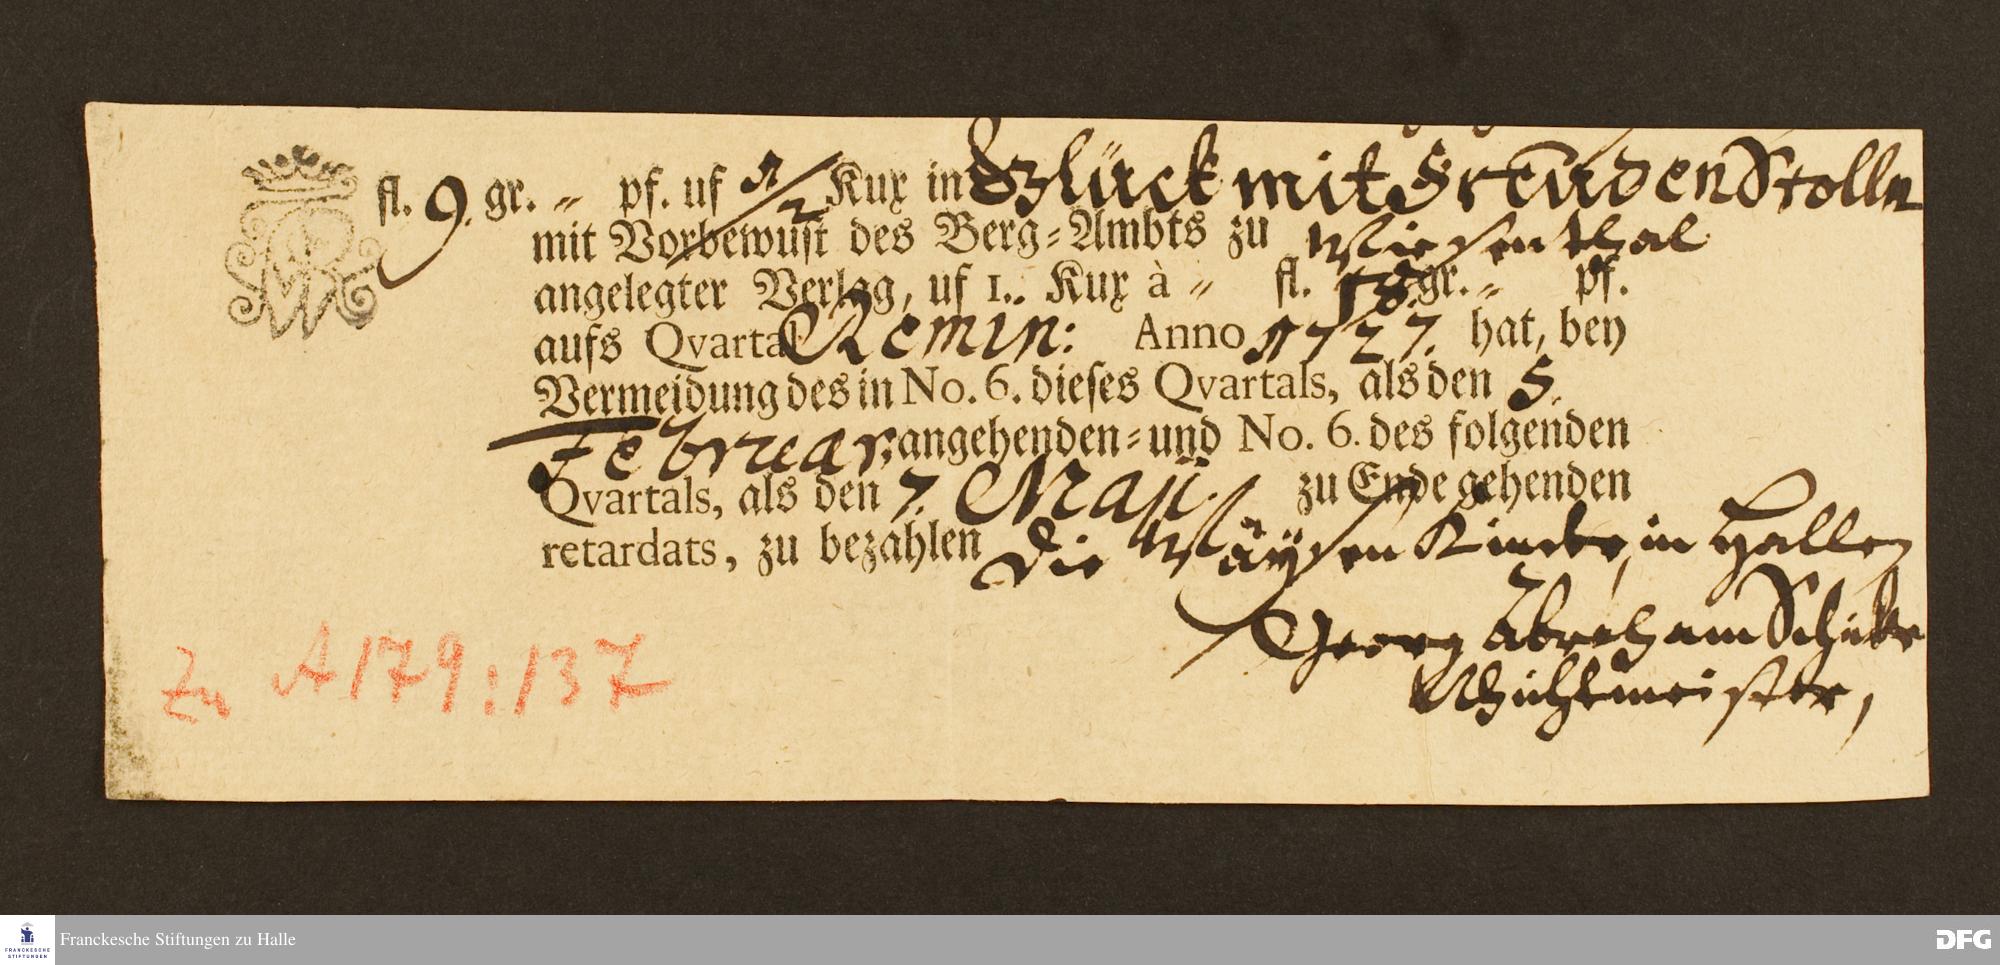 fl. 9. gr. „ pf. uf 1/2 Kux in Glück mit Freuden Stolln
mit Vorbewust des Berg-Ambts zu Wiesenthal
angelegter Verlag, uf 1. Kux à „ fl. 18 gr. „ pf.
aufs Qvartal Remin: Anno 1727. hat, bey
Vermeidung des in No. 6. dieses Qvartals, als den 5.
Februar: angehenden- und No. 6. des folgenden
Qvartals, als den 7. Maji. zu Ende gehenden
retardats, zu bezahlen Die Wäysen Kinder, in Halle
Georg Abraham
Schichtmeister,
Zu A 179:137
Franckesche Stiftungen zu Halle
FRANCKESCHE
STIFTUNGEN
DFG